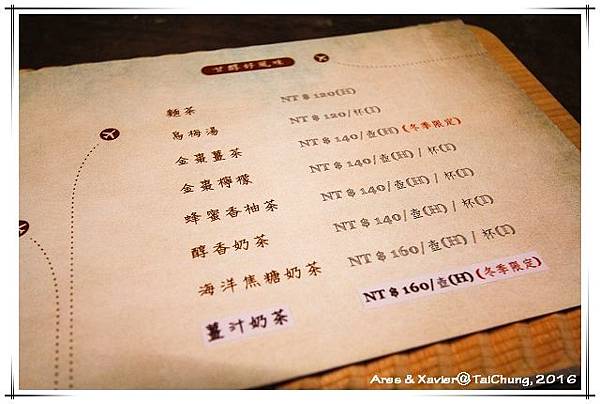 甘醇好風味
麵茶 NT$120(H)
烏梅湯 NT$120/杯(I)
金棗薑茶 NT$140/壺(H)(冬季限定)
金棗檸檬 NT$140/壺(H) / 杯(I)
蜂蜜香柚茶 NT$140/壺(H) / 杯(I)
醇香奶茶 NT$140/壺(H) / 杯(I)
海洋焦糖奶茶 NT$160/壺(H) / 杯(I)
薑汁奶茶 NT$160/壺(H)(冬季限定)
Ares & Xavier@TaiChung, 2016